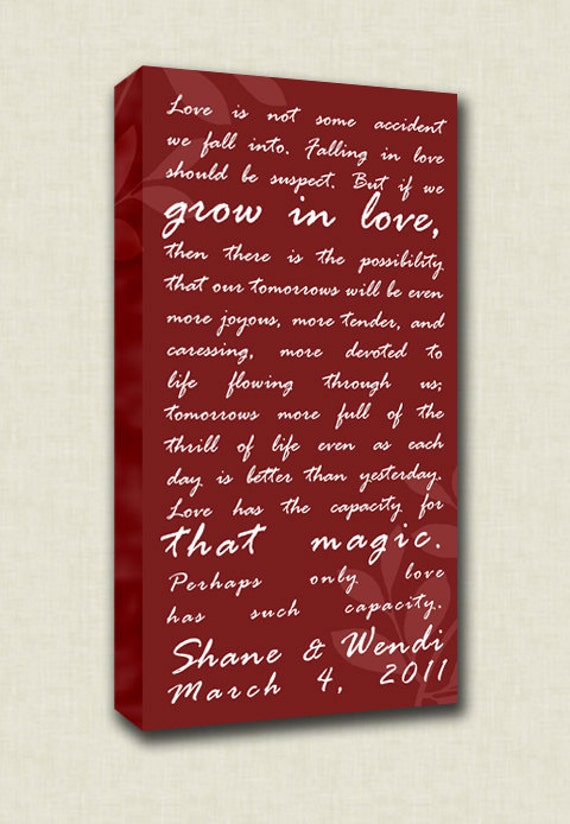 Love is not some accident
we fall into. Falling in love
should be suspect. But if we
grow in love,
then there is the possibility
that our tomorrows will be even
more joyous, more tender, and
caressing, more devoted to
life flowing through us;
tomorrows more full of the
thrill of life even as each
day is better than yesterday.
Love has the capacity for
that magic.
Perhaps only love
has such capacity.
Shane & Wendi
March 4, 2011